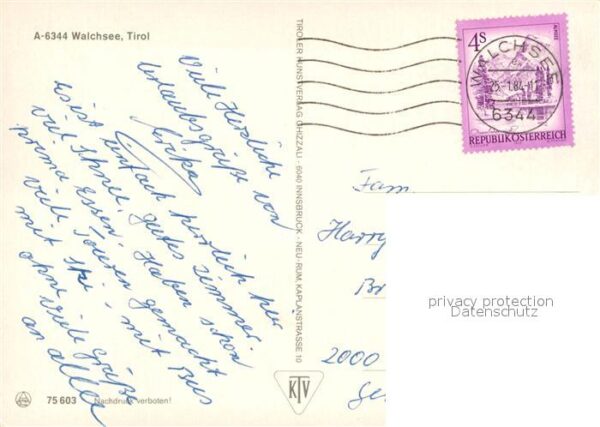 A-6344 Walchsee, Tirol
Viele Herzliche
Urlaubsgrüße von
Erika
es ist einfach herrlich hier
viel Schnee, gutes Zimmer.
prima Essen. Haben schon
viele Touren gemacht
mit Ski - mit Bus
ohne viele Grüße
an alle
75 603 Nachdruck verboten!
TIROLER KUNSTVERLAG CHIZZALI · 6040 INNSBRUCK - NEU-RUM, KAPLANSTRASSE 10
KTV
4S
REPUBLIK ÖSTERREICH
WALCHSEE
25.-1.84-17
6344
Fam.
Harry
2000
privacy protection
Datenschutz